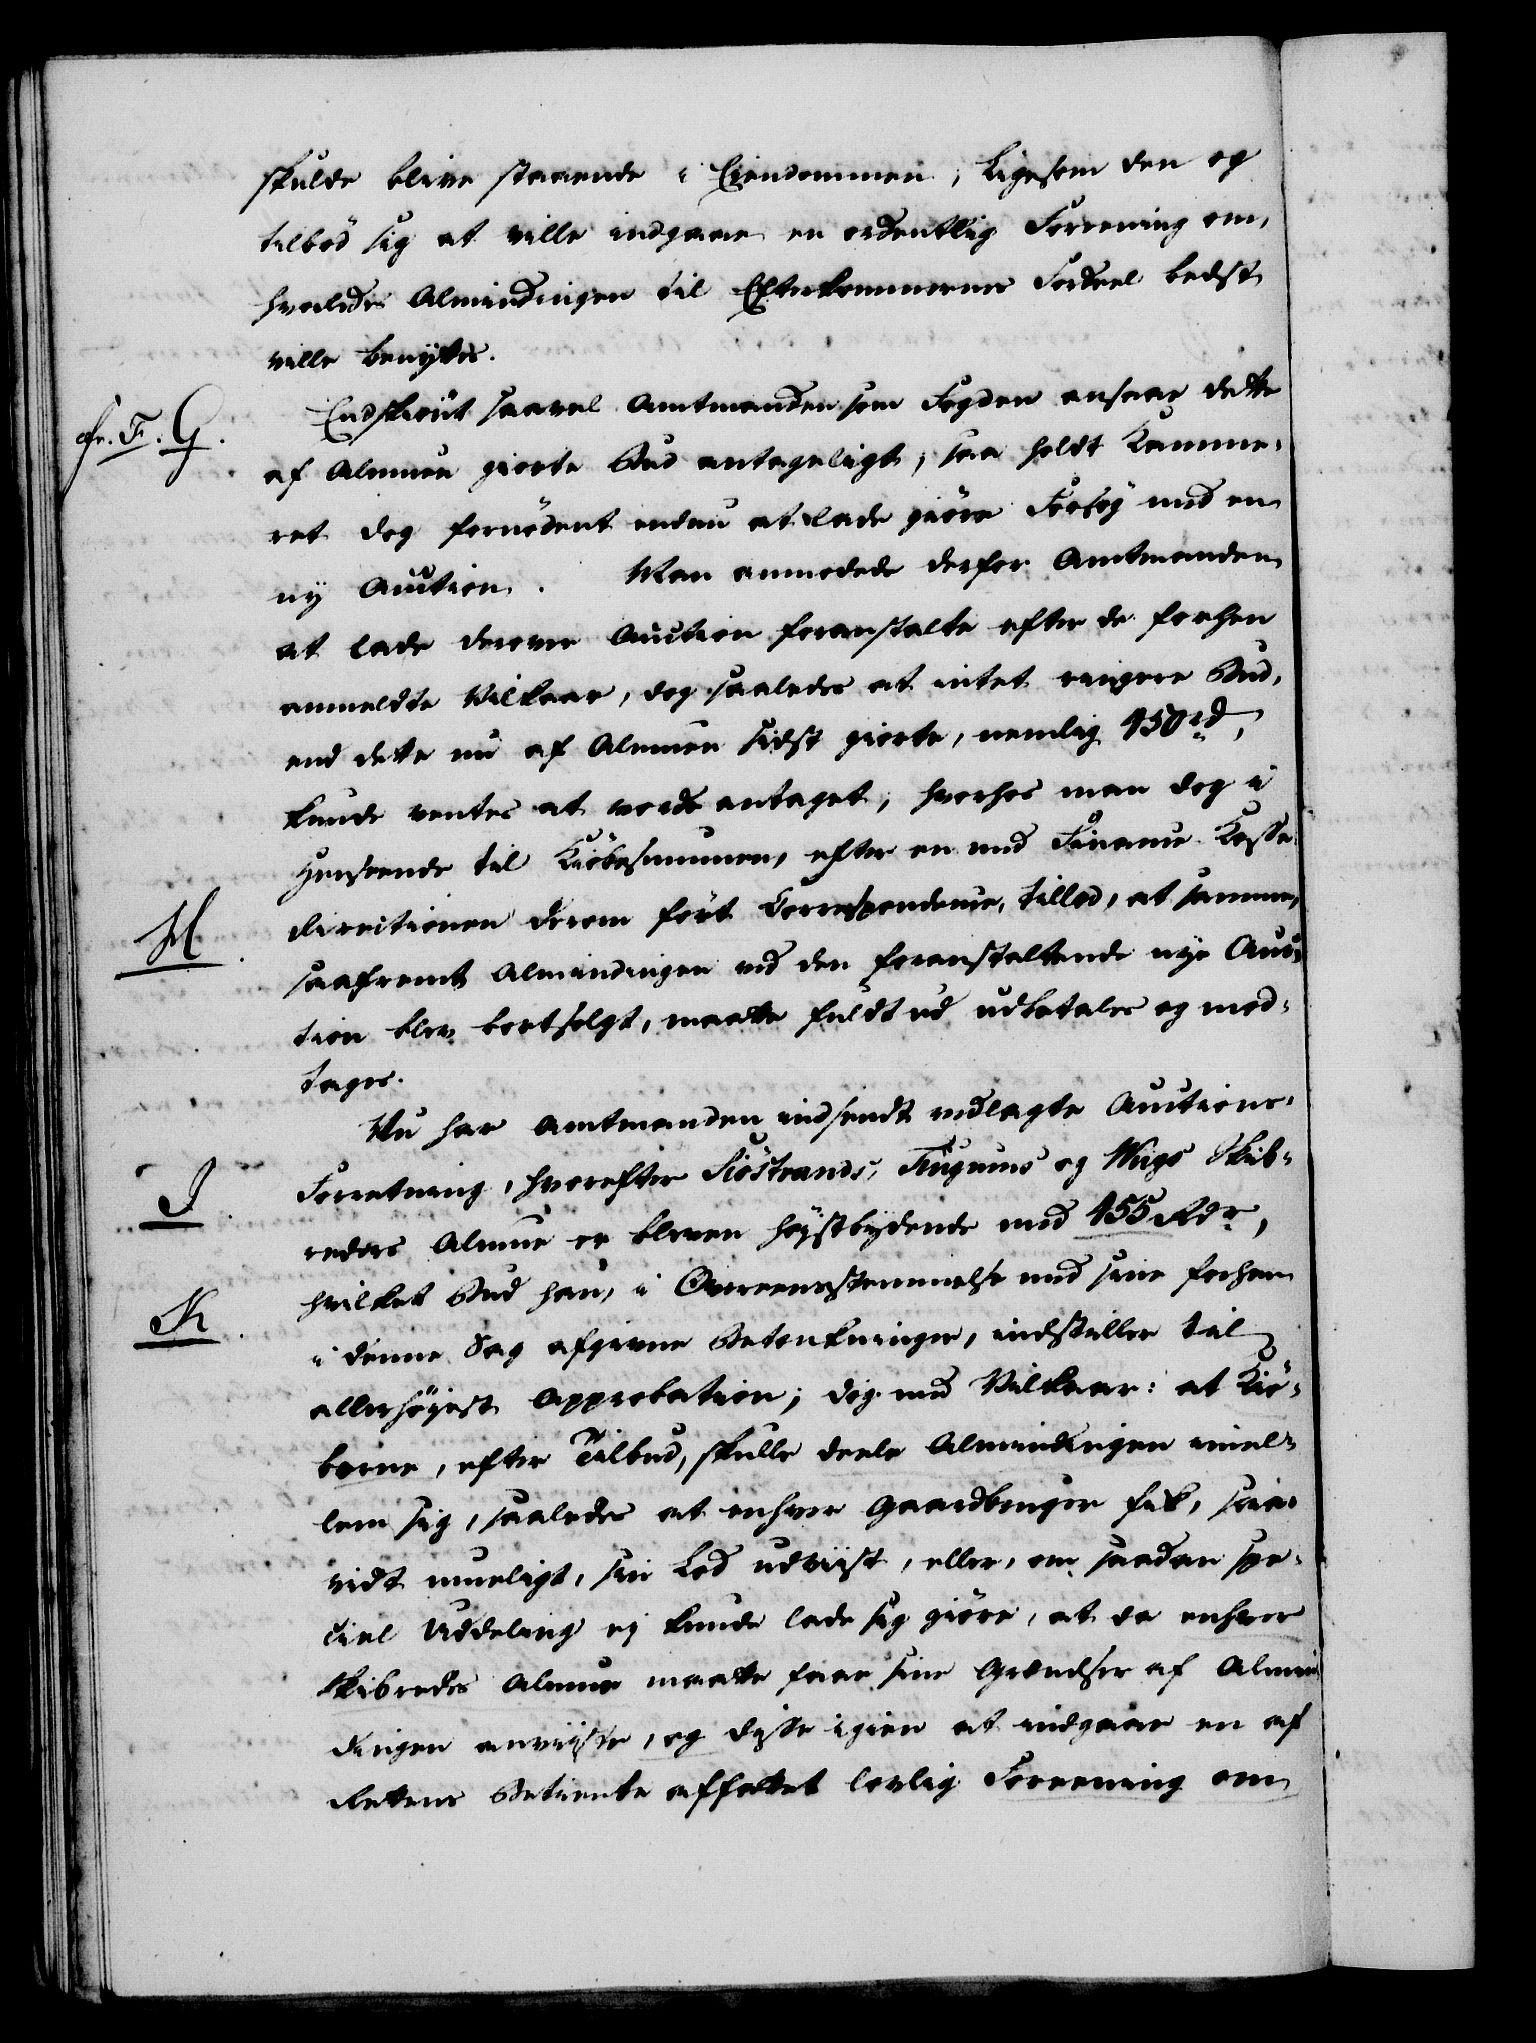 skulde blive staaende i Eiendommen; ligesom den og
tilbød sig at ville indgaae en ordentlig Forening om,
hvorledes Almindingen til Efterkommernes Fordeel bedst
ville benyttes.
cfr. F. G.
Endskiønt saavel Amtmanden som Fogden ansaae dette
af Almuen giorte Bud antageligt, saa holdt Kamme-
ret dog fornødent endnu at lade giøre Forsøg med en
ny Auction. Man anmodede derfor Amtmanden
at lade derover Auction foranstalte efter de forhen
anmeldte Vilkaar, dog saaledes at intet ringere Bud,
end dette nu af Almuen sidst giorte, nemlig 450 rd,
kunde ventes at worde antaget, hvorhos man dog i
Henseende til Kiøbesummen, efter en med Finance-Casse-
H.
directionen derom ført Correspondence, tillod, at samme,
saafremt Almindingen ved den foranstaltende nye Auc-
tion blev bortsolgt, maatte fuldt ud udbetales og mod-
tages.
Nu har Amtmanden indsendt vedlagte Auctions-
I.
Forretning, hvorefter Siøstrands, Flugums og Wiigs Skib-
reders Almue er bleven høystbydende med 455 Rdr,
K.
hvilket Bud han, i Overeensstemmelse med sine forhen
i denne Sag afgivne Betænkninger, indstiller til
allerhøyest Approbation; dog med Vilkaar: at Kiø-
berne, efter Tilbud, skulle deele Almindingen imel-
lem sig, saaledes at enhver Gaardbruger fik, saa-
vidt mueligt, sin Lod udviist, eller, om saadan spe-
ciel Uddeling ej kunde lade sig giøre, at da enhver
Skibredes Almue maatte faae sine Grændser af Almin-
dingen anviiste, og disse igien at indgaae en af
Rettens Betiente affattet lovlig Foreening om